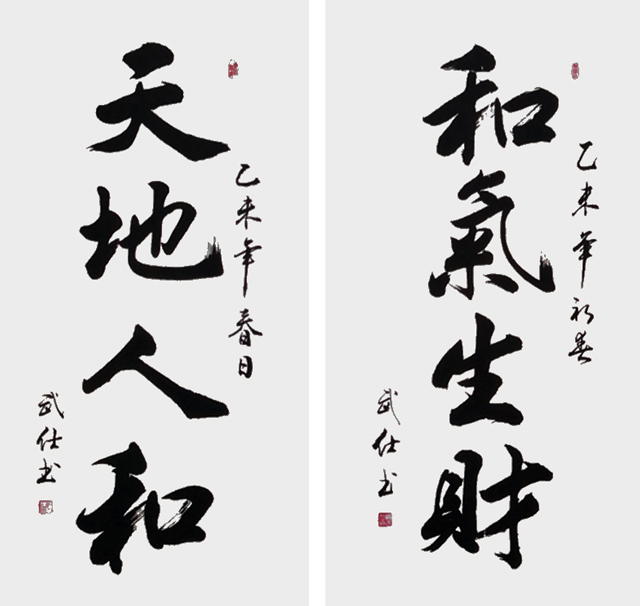 天地人和
乙未年春日
武仕书
和氣生財
乙未年初春
武仕书